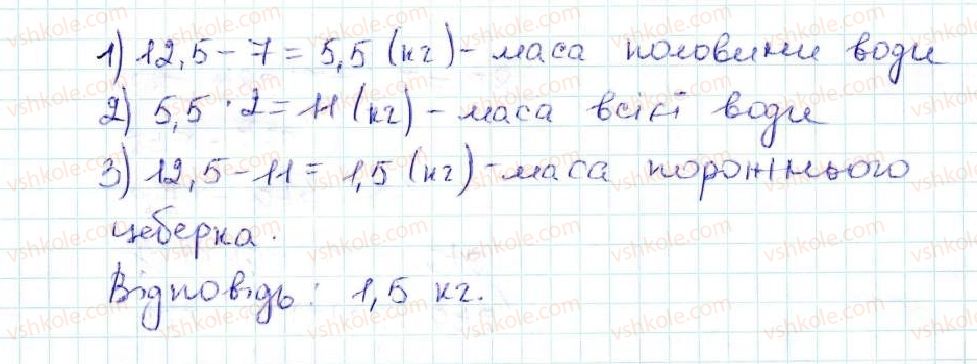 1) 12,5 - 7 = 5,5 (кг) - маса половини води
2) 5,5 · 2 = 11 (кг) - маса всієї води
3) 12,5 - 11 = 1,5 (кг) - маса порожнього
цеберка.
Відповідь: 1,5 кг.
vshkole.com